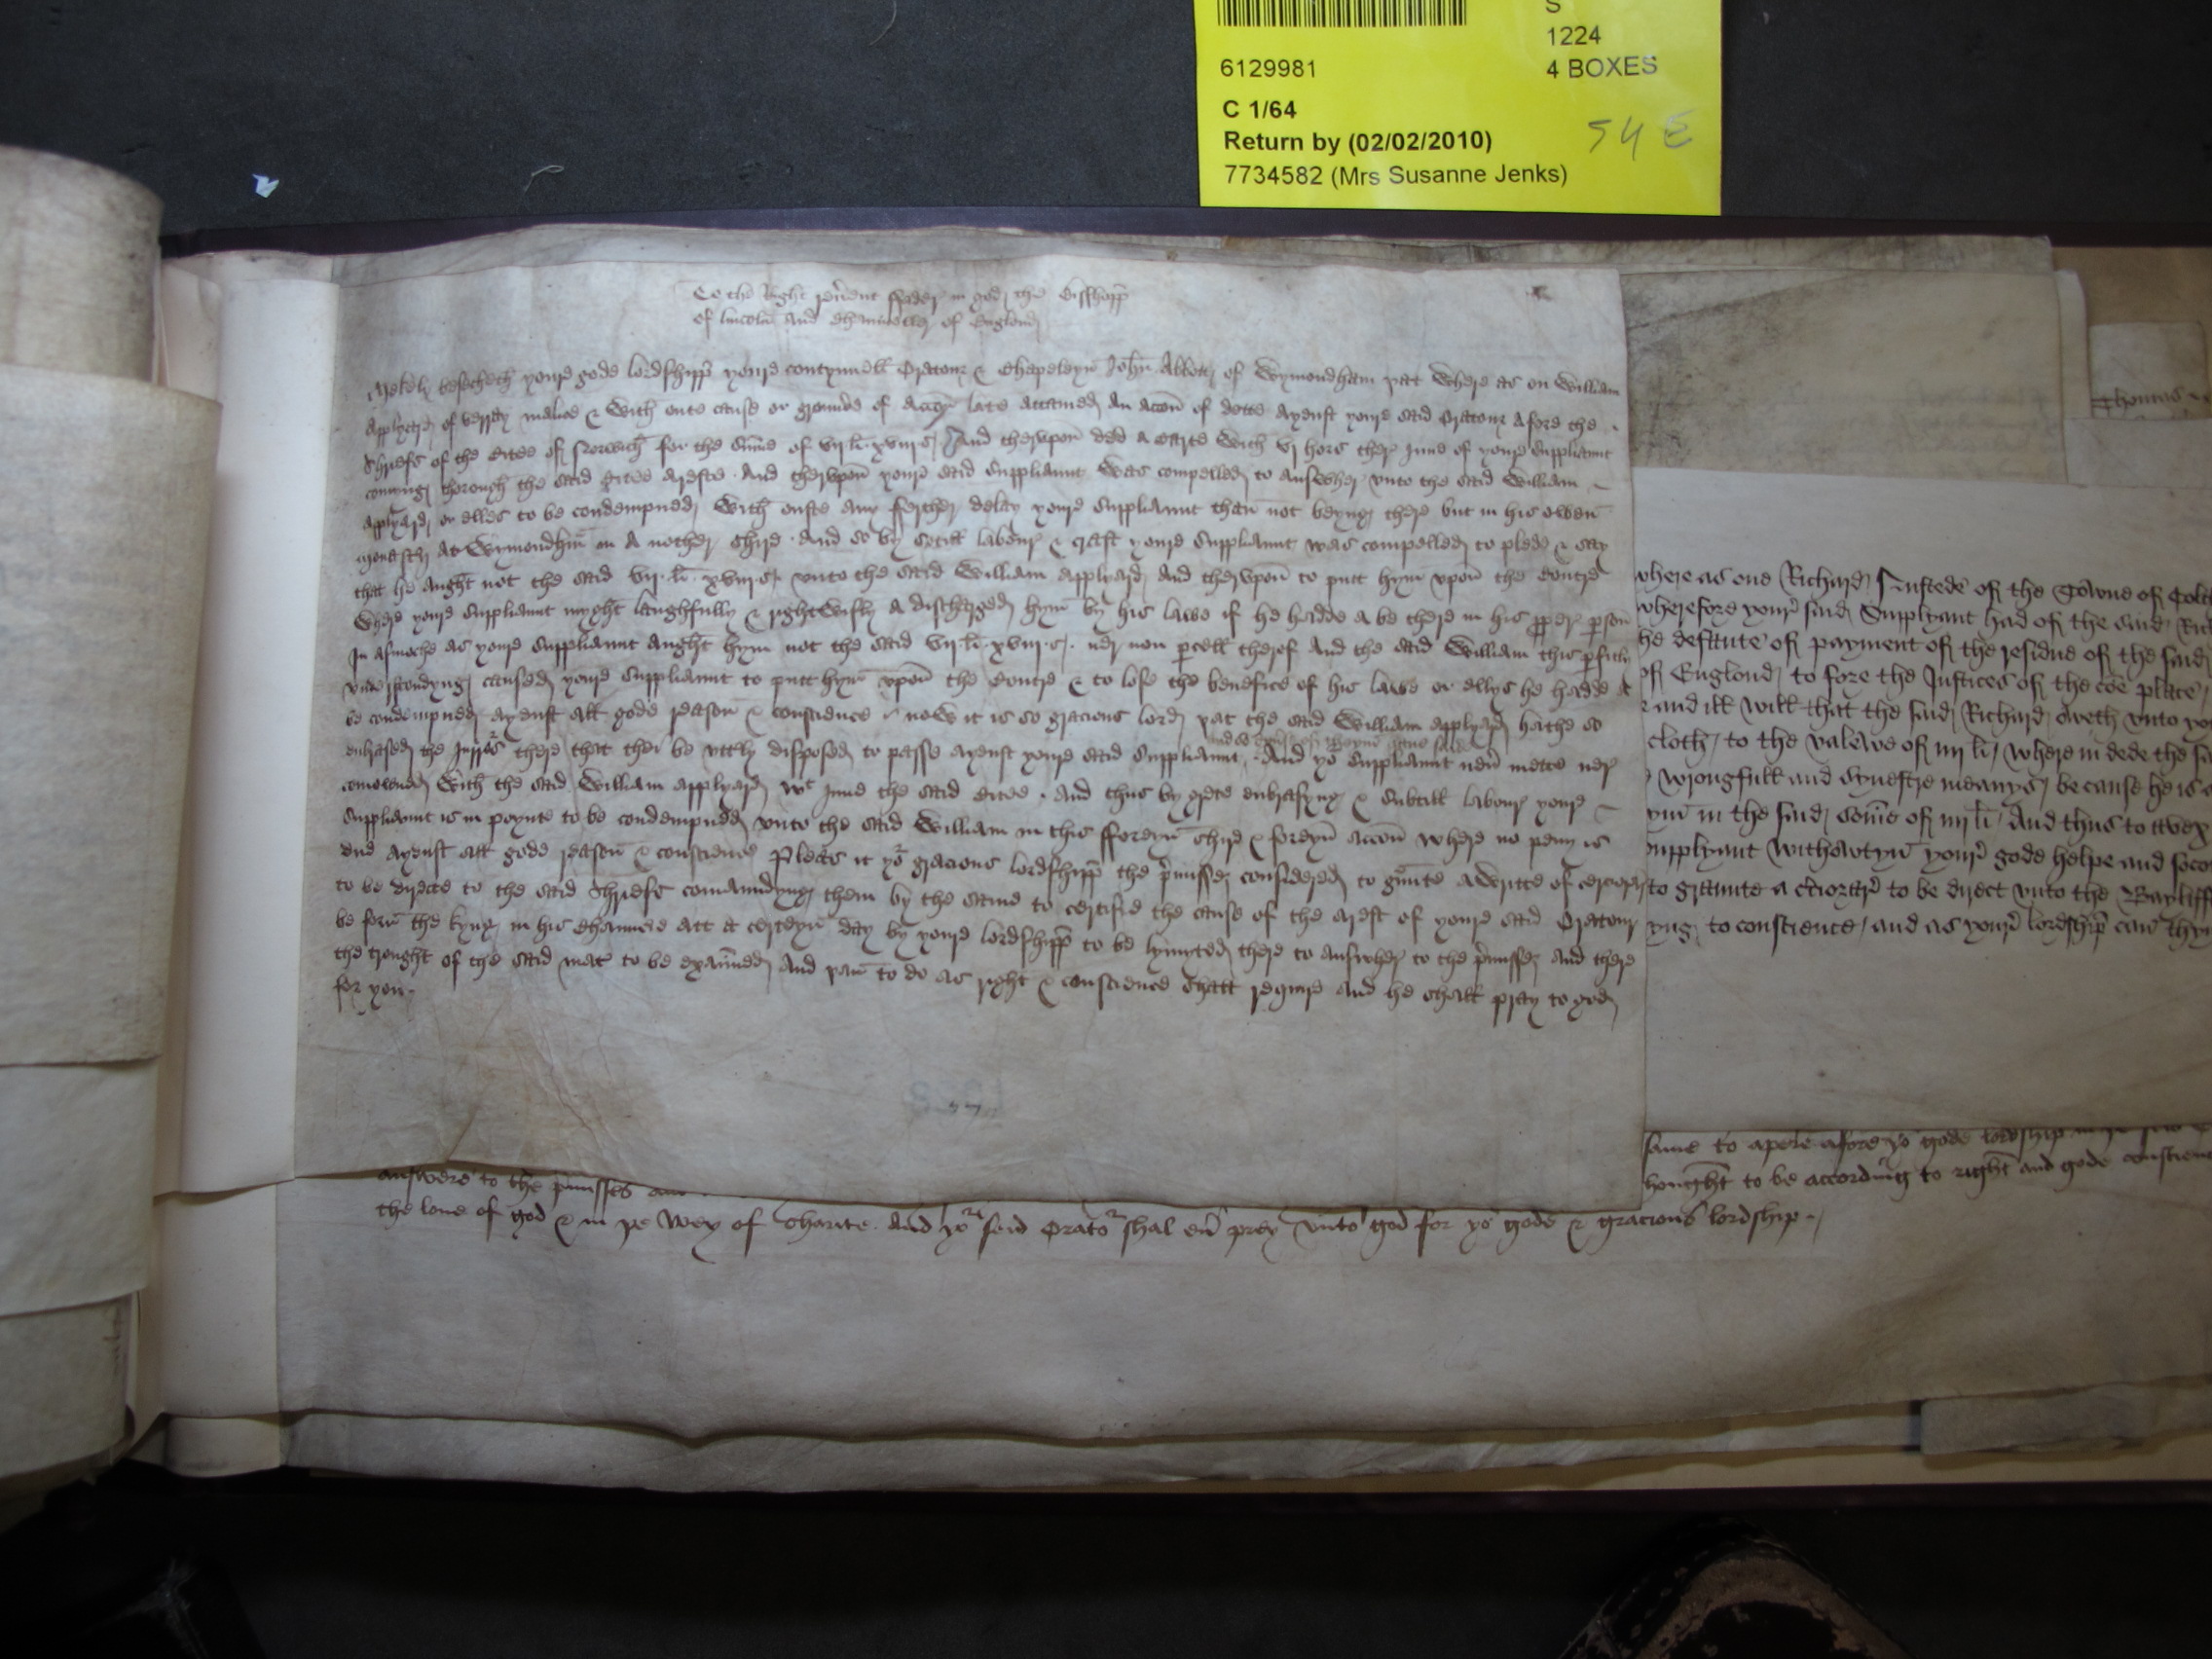 S
1224
6129981 4 BOXES
C 1/64
Return by (02/02/2010) 54 E
7734582 (Mrs Susanne Jenks)
To the Right revent ffader in god the Bisshopp
of lincoln and Chaunceller of Englond
Mekely besecheth youre gode lordshipp youre contynuell Oratour & Chapeleyn John Abbott of Wymondham yat where as on William
Applyard of verrey malice & with oute cause or grounde of late attamed an accon of dette ayenst youre said Oratour afore the
Shriefs of the Citee of Norwich for the sume of vij li xviij s And therupon ded a carte with vj hors ther Inne of youre Suppliaunt
comyng thorough the said Citee areste And therupon youre said Suppliaunt was compelled to answher unto the said William
applyard or elles to be condempned with oute any ferther delay youre Suppliaunt than not beyng there but in his owen
at Wymondhm in A nother shire And so by sotill labour & craft youre Suppliaunt was compelled to plede & say
that he aught not the said vij li xviij s unto the said William applyard And therupon to putt hym upon the Contre
where youre Suppliaunt myght laughfully & rightwisly a discharged hym by his lawe if he hadde a be there in his pper pson
In asmoche as youre Suppliaunt aught hym not the said vij li xviij s ner non pcell therof And the said William this pfitly
understondyng caused youre Suppliaunt to putt hym upon the Contre & to lose the benefice of his lawe or ellys he hadde a
be condempned ayenst all gode reason & conscience & now it is so gracious lord yat the said William applyard hathe so
enbrased the Jurros there that thei be uttly disposed to passe ayenst youre said Suppliaunt And yor Suppliaunt nevr mette ner
comoned with the said William applyard wt Inne the said Citee And thus by grete enbrasyng & Subtill labour youre
Suppliaunt is in poynte to be condempned unto the said William in this fforeyn shire & foreyn accon where no peny is
due ayenst all gode reason & conscience Pleas it yor gracious lordshipp the pmisses considered to graunte a writte of cerciorare
to be directe to the said Shriefs comaundyng them by the same to certifie the cause of the arest of youre said Oratour
be forn the kyng in his Chauncre att a certeyn day by youre lordshipp to be lymyted there to answher to the pmisses And there
the trought of the said mat to be examined And yan to do as right & conscience shall require And he shall pray to god
for you
Thomas
where as one Richard of the Towne of Colc
wherefore your said Supplyant had of the said Ric
he defaute of payment of the residue of the said
of Englond to fore the Justices of the coe place
and ill will that the said Richard oweth unto yo
cloth to the valewe of iiij li where in dede the sa
wrongfull and synestre meanys because he is
in the said some of iiij li And thus to
upplyant withowtyn your gode helpe and soco
to graunte a ctiorari to be direct unto the Bayliff
yng to conscience and as your lordship can thy
same to apere afore yor gode lordship in
answere to the pmisses hought to be according to right and gode conscienc
the loue of god & in ye wey of charite And yor seid Orator shal eu prey vnto god for yor gode & gracious lordship